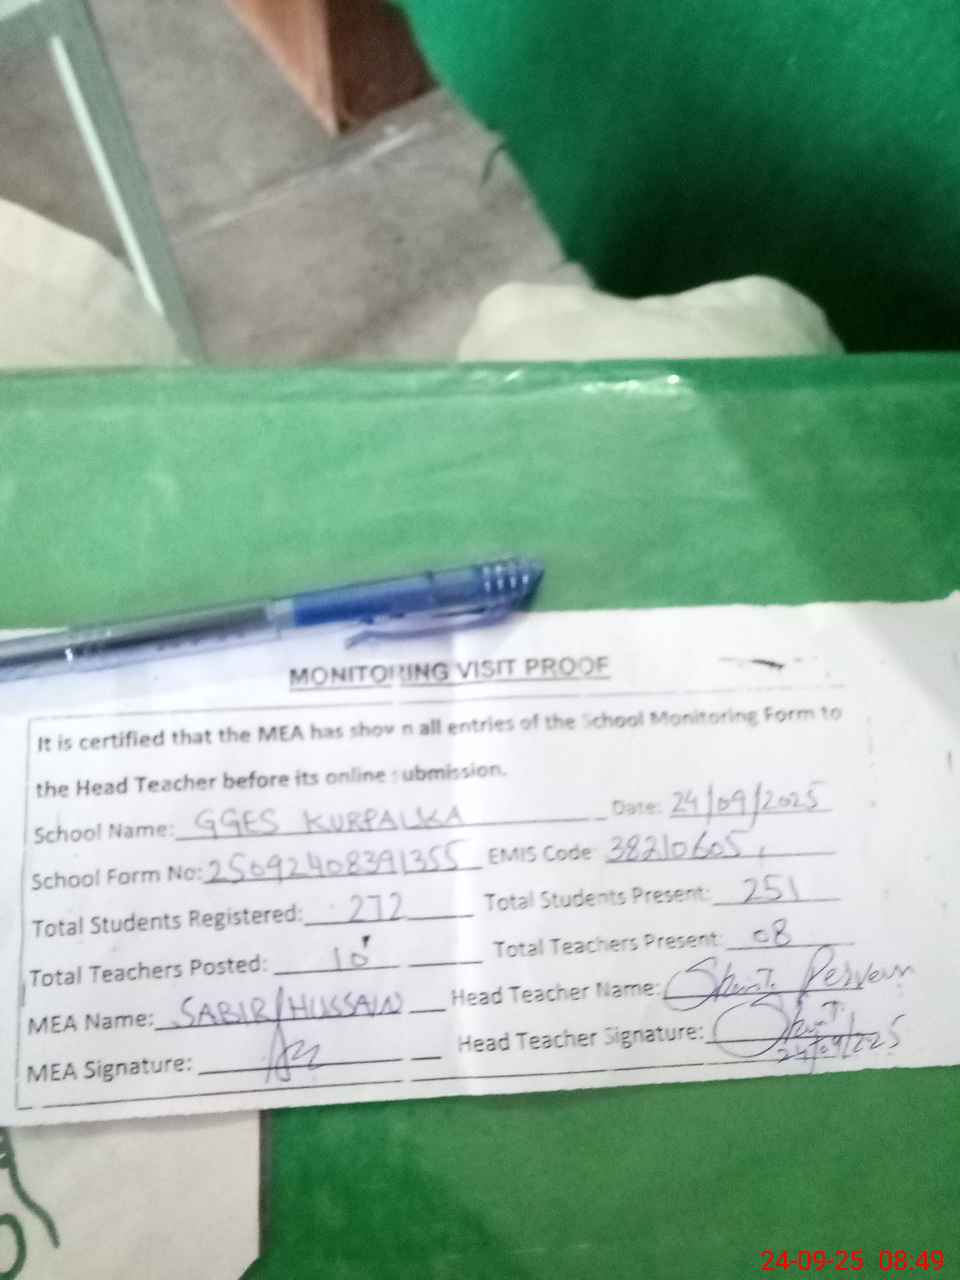 MONITORING VISIT PROOF
It is certified that the MEA has shown all entries of the School Monitoring Form to
the Head Teacher before its online submission.
School Name: GGES KURPALKA Date: 24/09/2025
School Form No: 25092408391355 EMIS Code 38210605
Total Students Registered: 272 Total Students Present: 251
Total Teachers Posted: 10 Total Teachers Present: 08
MEA Name: SABIR HUSSAIN Head Teacher Name: Perveen
MEA Signature: Head Teacher Signature:
24/09/2025
24-09-25 08:49